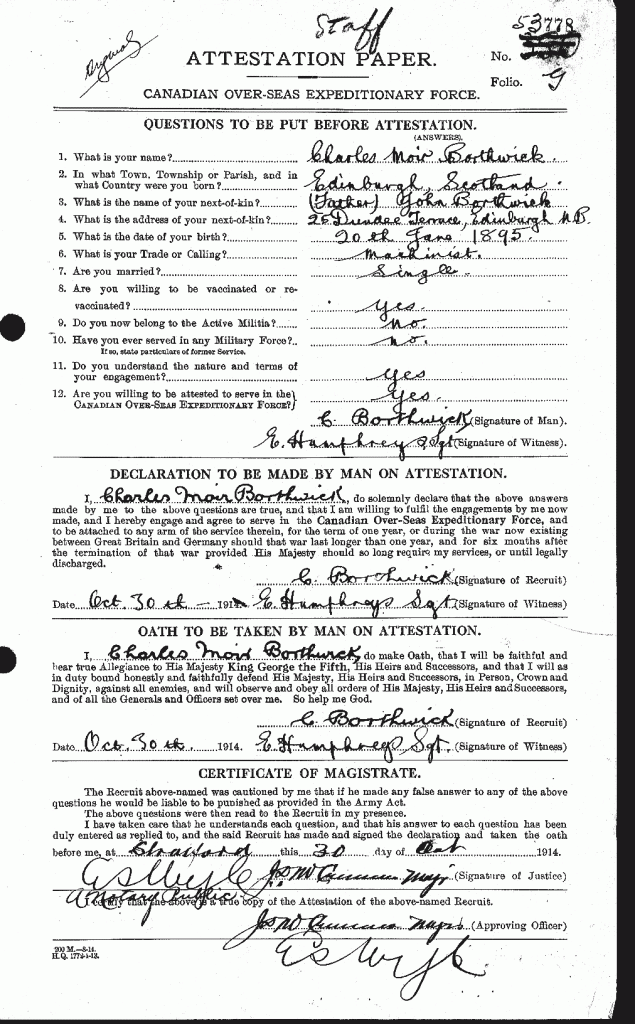 Original
Staff
53778
ATTESTATION PAPER.
No.
Folio. 9
CANADIAN OVER-SEAS EXPEDITIONARY FORCE.
QUESTIONS TO BE PUT BEFORE ATTESTATION.
(ANSWERS).
1. What is your name? Charles Moir Borthwick.
2. In what Town, Township or Parish, and in
what Country were you born? Edinburgh, Scotland.
3. What is the name of your next-of-kin? (Father) John Borthwick
4. What is the address of your next-of-kin? 25 Dundee Terrace, Edinburgh N.B.
5. What is the date of your birth? 20th June 1895.
6. What is your Trade or Calling? Machinist.
7. Are you married? Single.
8. Are you willing to be vaccinated or re-
vaccinated? Yes.
9. Do you now belong to the Active Militia? no.
10. Have you ever served in any Military Force? no.
If so, state particulars of former Service.
11. Do you understand the nature and terms of
your engagement? Yes
12. Are you willing to be attested to serve in the
CANADIAN OVER-SEAS EXPEDITIONARY FORCE? Yes.
C. Borthwick (Signature of Man).
E. Humphreys Sgt (Signature of Witness).
DECLARATION TO BE MADE BY MAN ON ATTESTATION.
I, Charles Moir Borthwick, do solemnly declare that the above answers
made by me to the above questions are true, and that I am willing to fulfil the engagements by me now
made, and I hereby engage and agree to serve in the Canadian Over-Seas Expeditionary Force, and
to be attached to any arm of the service therein, for the term of one year, or during the war now existing
between Great Britain and Germany should that war last longer than one year, and for six months after
the termination of that war provided His Majesty should so long require my services, or until legally
discharged.
C. Borthwick (Signature of Recruit)
Date Oct. 30th - 1914. E. Humphreys Sgt. (Signature of Witness)
OATH TO BE TAKEN BY MAN ON ATTESTATION.
I, Charles Moir Borthwick, do make Oath, that I will be faithful and
bear true Allegiance to His Majesty King George the Fifth, His Heirs and Successors, and that I will as
in duty bound honestly and faithfully defend His Majesty, His Heirs and Successors, in Person, Crown and
Dignity, against all enemies, and will observe and obey all orders of His Majesty, His Heirs and Successors,
and of all the Generals and Officers set over me. So help me God.
C. Borthwick (Signature of Recruit)
Date Oct. 30th. 1914. E. Humphreys Sgt. (Signature of Witness)
CERTIFICATE OF MAGISTRATE.
The Recruit above-named was cautioned by me that if he made any false answer to any of the above
questions he would be liable to be punished as provided in the Army Act.
The above questions were then read to the Recruit in my presence.
I have taken care that he understands each question, and that his answer to each question has been
duly entered as replied to, and the said Recruit has made and signed the declaration and taken the oath
before me, at Stratford this 30 day of Oct 1914.
(Signature of Justice)
A Notary Public
I certify that the above is a true copy of the Attestation of the above-named Recruit.
(Approving Officer)
200 M.—8-14.
H. Q. 1772-1-13.